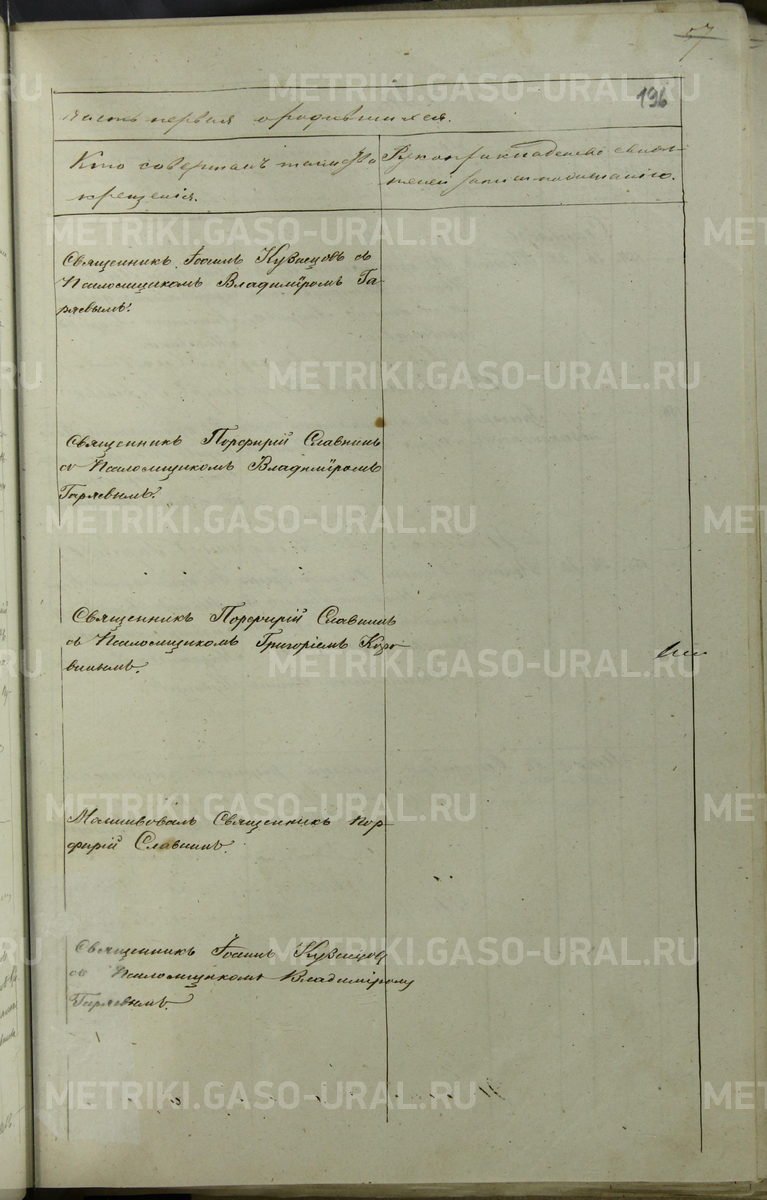 57
196
METRIKI.GASO-URAL.RU
Часть первая о родившихся.
Кто совершалъ таинство
крещенія.
Рукоприкладство свидѣ-
телей записи по желанію.
Священникъ Іоаннъ Кузнецовъ съ
Псаломщикомъ Владиміромъ Га-
ряевымъ.
METRIKI.GASO-URAL.RU
Священникъ Порфирій Славнинъ
съ Псаломщикомъ Владиміромъ
Гаряевымъ.
METRIKI.GASO-URAL.RU
Священникъ Порфирій Славнинъ
съ Псаломщикомъ Григоріемъ
METRIKI.GASO-URAL.RU
Молитвовалъ Священникъ Пор-
фирій Славнинъ.
Священникъ Іоаннъ Кузнецовъ
съ Псаломщикомъ Владиміромъ
Гаряевымъ.
METRIKI.GASO-URAL.RU